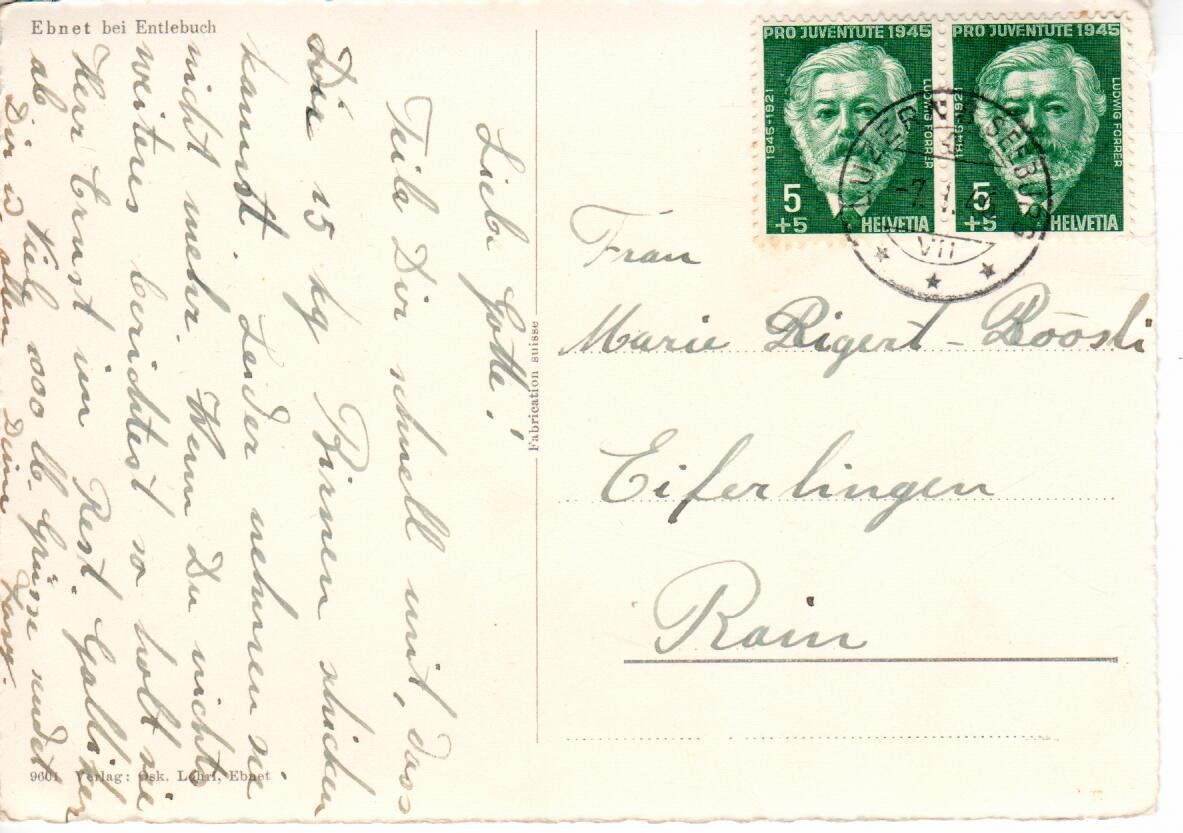 Ebnet bei Entlebuch
Liebe Gotte!
Teile Dir schnell mit, dass
Du 15 kg Birnen schicken
kannst. Leider nehmen sie
nicht mehr. Wenn Du nichts
weiteres berichtest so holt sie
Herr Ernst im Rest. Galliker
ab. Viele 1000 lb. Grüsse sendet
Dir u allen Deine
Fabrication suisse
9601 Verlag: Osk. Lehri, Ebnet
PRO JUVENTUTE 1945
1846-1921
LUDWIG FORRER
5
+5
HELVETIA
PRO JUVENTUTE 1945
1846-1921
LUDWIG FORRER
5
+5
HELVETIA
LUZERN SEEBURG
VII
Frau
Marie Rigert-Bösli
Eiferlingen
Rain